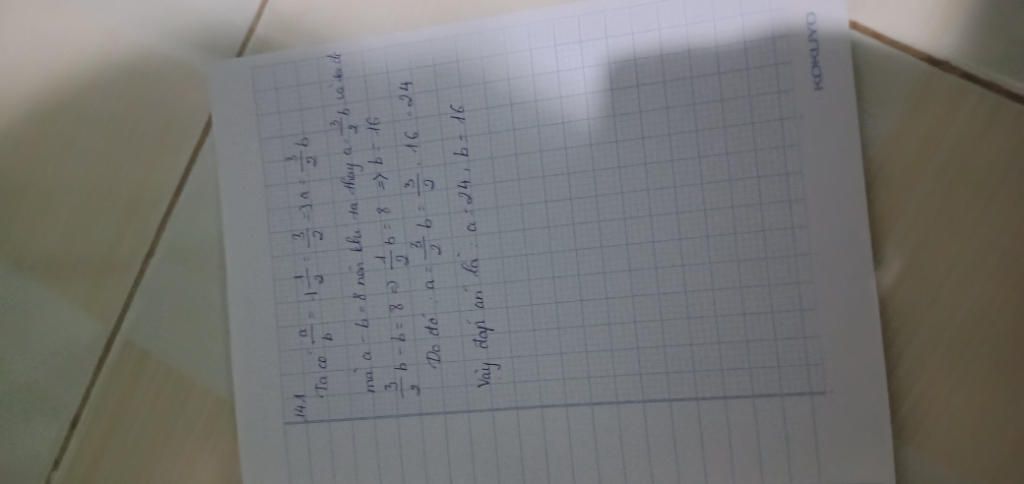 14.1
Ta có: a/b = 1 1/2 = 3/2 => a = 3/2 b
mà a - b = 8 nên khi ta thay a = 3/2 b vào
3/2 b - b = 8 => 1/2 b = 8 => b = 16
Do đó: a = 3/2 b = 3/2 . 16 = 24
Vậy đáp án là: a = 24, b = 16
KOKUYO